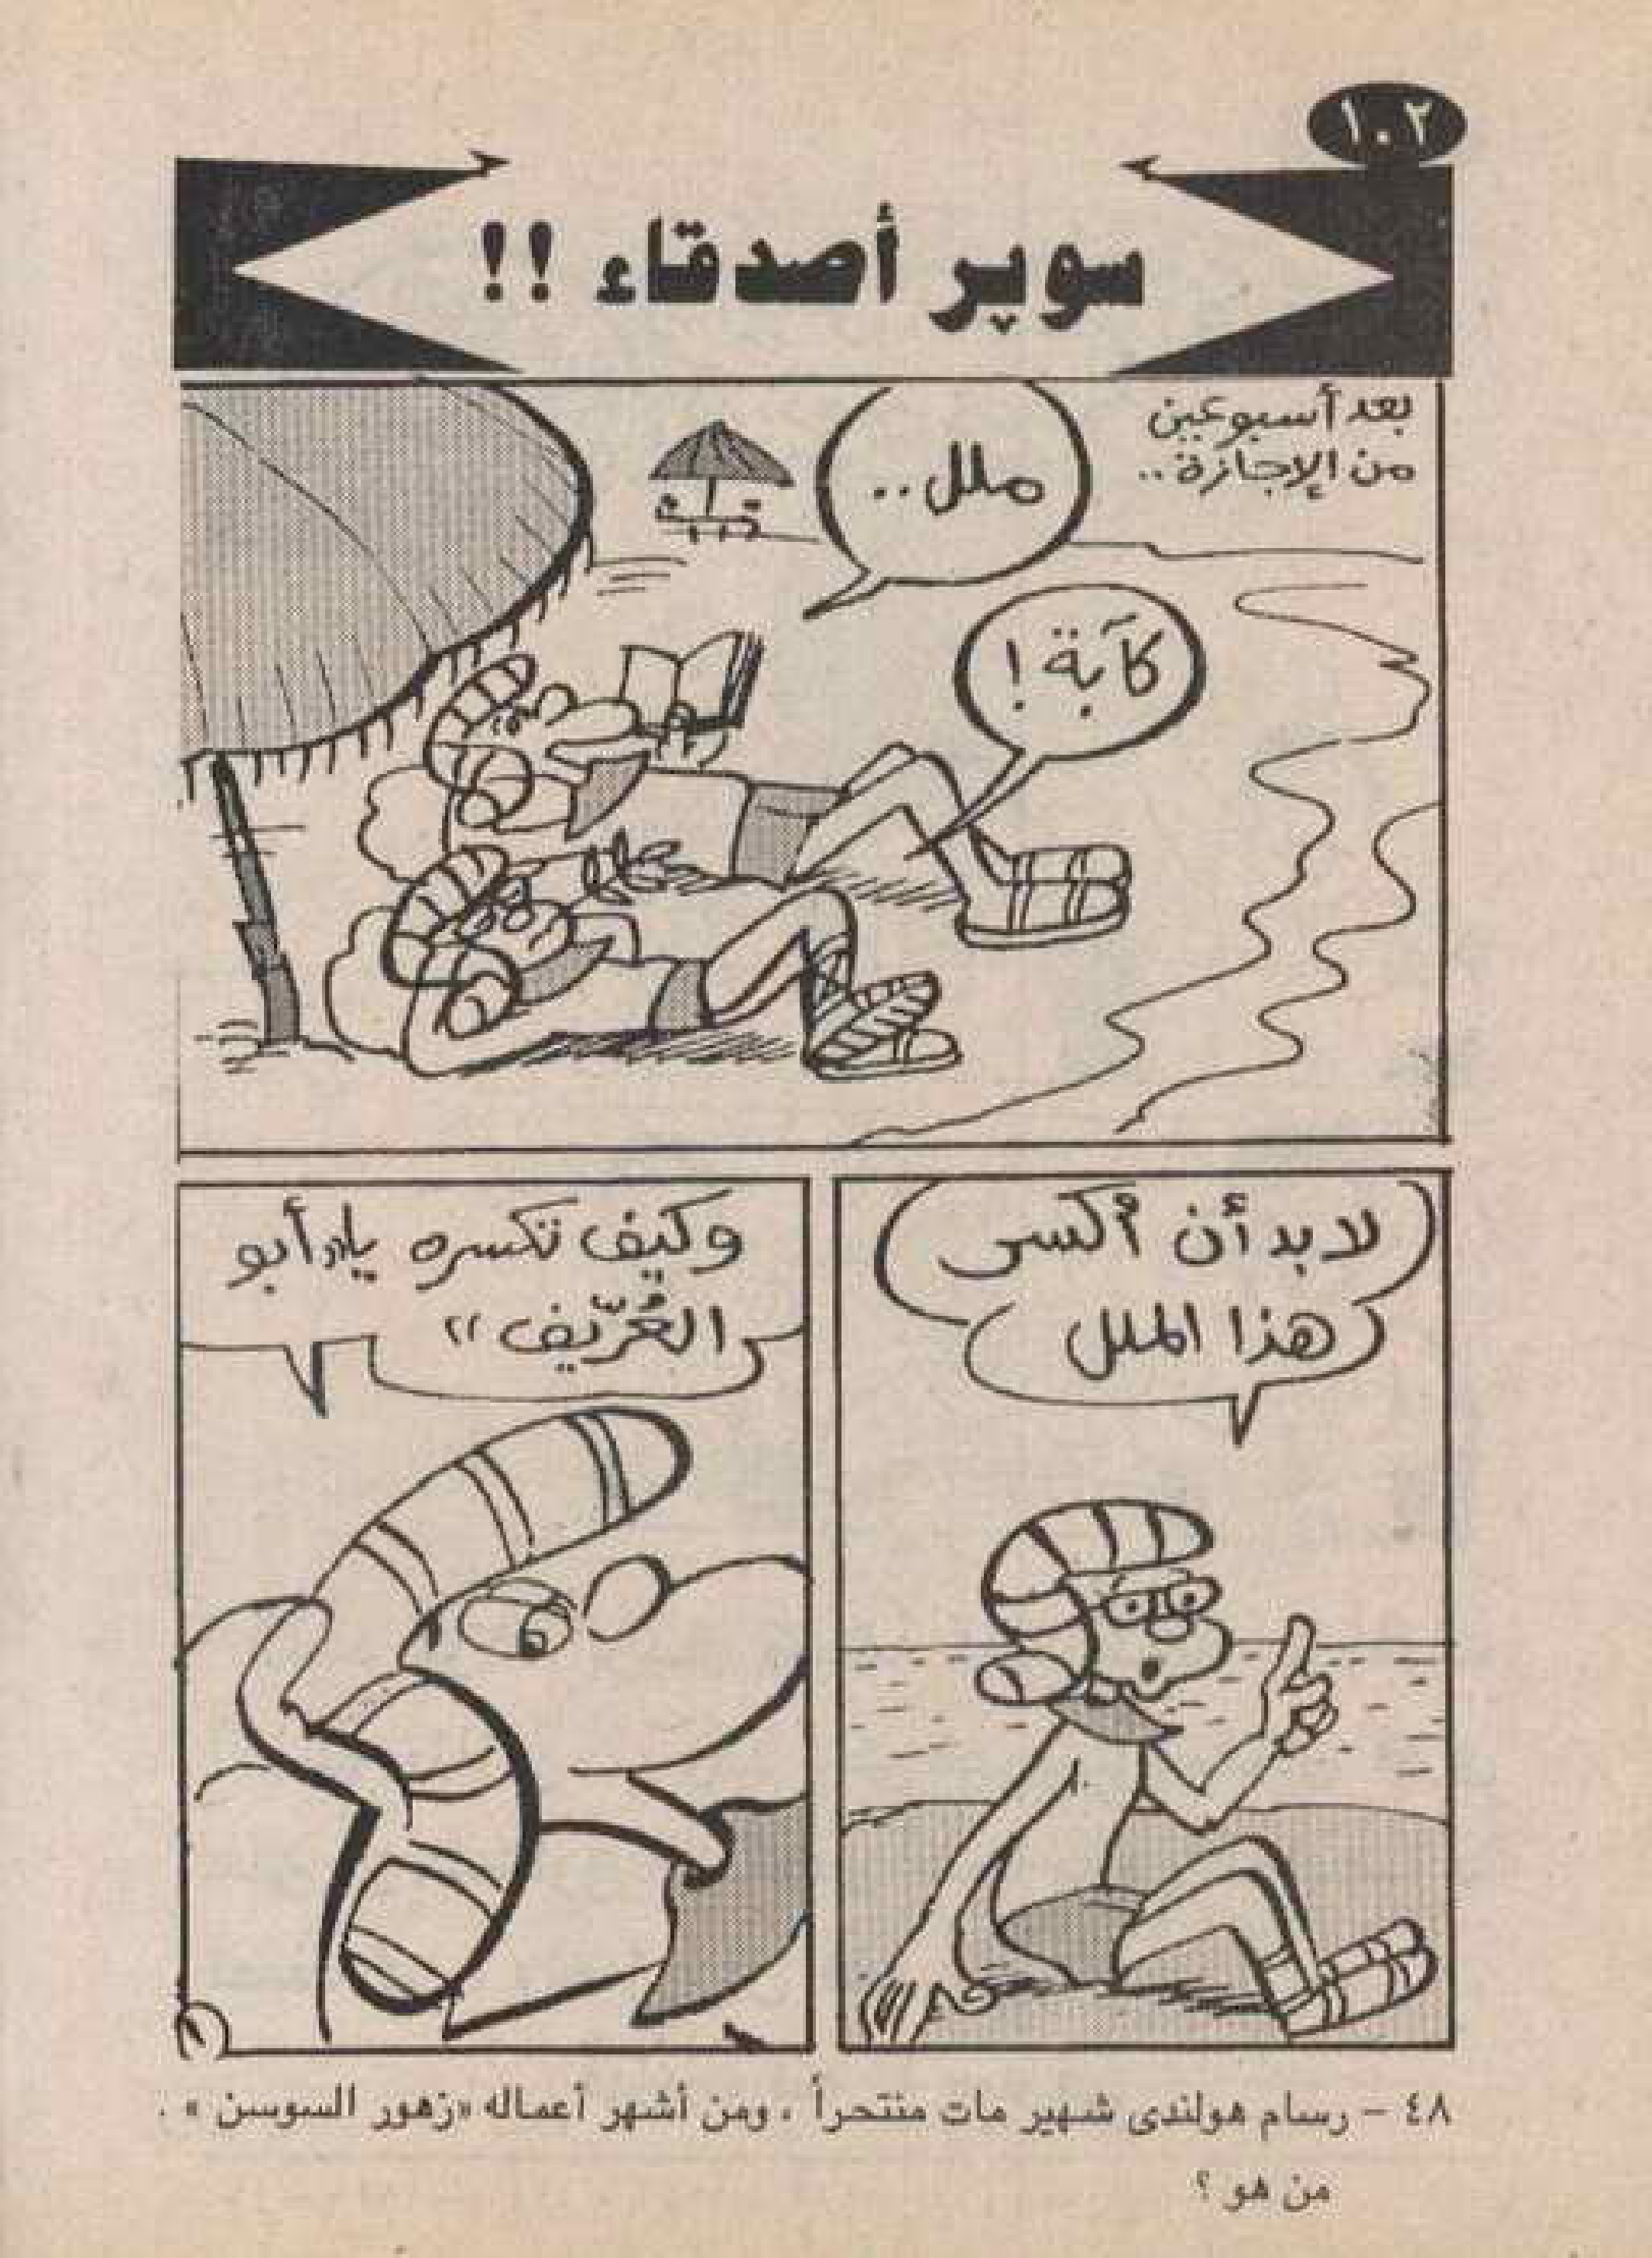 ١٠٢
سوپر أصدقاء !!
بعد أسبوعين
من الإجازة..
ملل..
كآبة !
لا بد أن أكسر
هذا الملل
وكيف تكسره يا «أبو
العُرّيف»
١
٤٨ - رسام هولندى شهير مات منتحراً ، ومن أشهر أعماله «زهور السوسن» .
من هو ؟